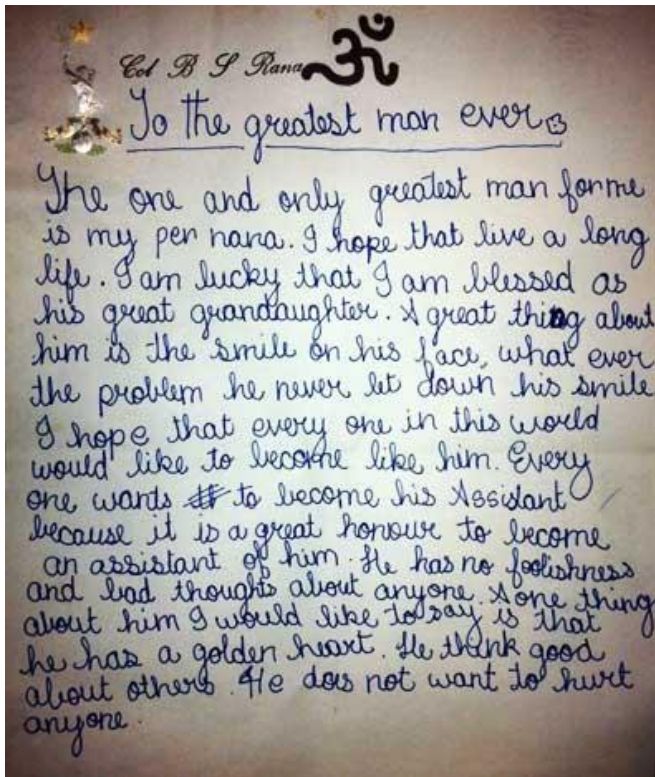 Col B S Rana ॐ
To the greatest man ever
The one and only greatest man for me
is my per nana. I hope that live a long
life. I am lucky that I am blessed as
his great grandaughter. A great thing about
him is the smile on his face, what ever
the problem he never let down his smile
I hope that every one in this world
would like to become like him. Every
one wants to become his Assistant
because it is a great honour to become
an assistant of him. He has no foolishness
and bad thoughts about anyone. A one thing
about him I would like to say is that
he has a golden heart. He think good
about others. He does not want to hurt
anyone.